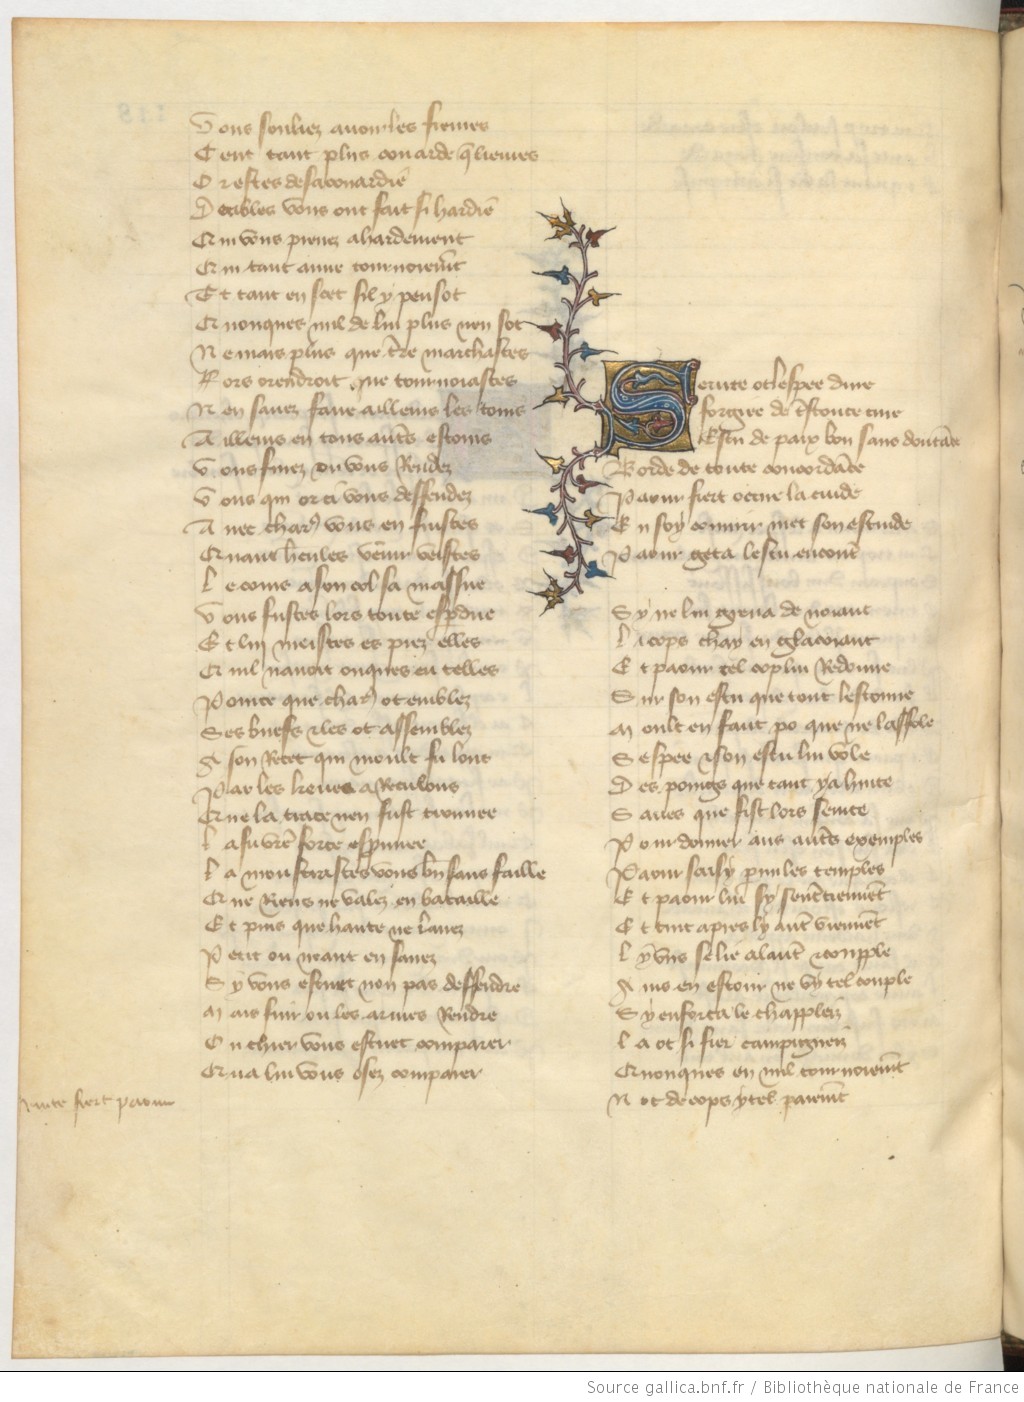 Vous souliez avoir les fievres
Cent tant plus couarde q̃ lievres
Or estes desacouardie
Deables vous ont fait si hardie
Qui vous prenez a hardement
Qui tant aime tournoiem̃t
Et tant en scet sil y pensot
Quonques nul de lui plus nen sot
Ne mais plus que t̃re marchastes
Fors orendroit ne tournoiastes
Nen savez faire ailleurs les tours
Ailleurs en tous autr̃s estours
Vous fuiez ou vous Rendez
Vous qui or ci vous deffendez
Avec char9 vous en fuistes
Quant hercules venir veistes
Le cours a son col sa massue
Vous fustes lors toute esp̃due
Et lui meistes es piez elles
Quil navoit onques eu telles
Pource que char9 ot emblez
Ses buefs ⁊ les ot assemblez
A son Recet qui moult fu lonc
Par les keues a Reculons
Que la trace nen fust trouvee
La fu vr̃e force esprouvee
La monstrastes vous bñ sans faille
Que Riens ne valez en bataille
Et puis que hante ne lavez
Petit ou neant en savez
Sy vous estuet non pas deffendre
Mais fuir ou les armes Rendre
Ou chier vous estuet comparer
Qua lui vous osez comparer
seurte fiert paour
Seurte ot lespee dure
forgiee de t̃stoute cure
Escu de paix bon sans doutãce
Borde de toute concordãce
Paour fiert occire la cuide
En soy couvrir met son estuide
Paour geta lescu encont̃
Sy ne lui greva de noiant
Li cops chay en glacoiant
Et paour tel cop lui Redonne
Sur son escu que tout lestonne
Moult en faut po que ne laffole
Sespee ⁊ son escu lui vole
Des poings que tant y a hurte
Saves que fist lors seurte
Pour donner aus autr̃s exemples
Paour saisy p̃mi les temples
Et paour lui sy sentretiennẽt
Et tuit apres ly aut̃ viennẽt
Ly vns se lie a laut̃ ⁊ coupple
Ains en estour ne vy tel couple
Sy enforca le chappleiz
La ot si fier campigneiz
Quonques en nul tournoiem̃t
Not de cops ytel paiem̃t
Source gallica.bnf.fr / Bibliothèque nationale de France